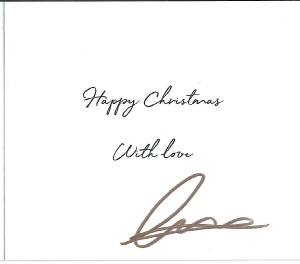 Happy Christmas
With love